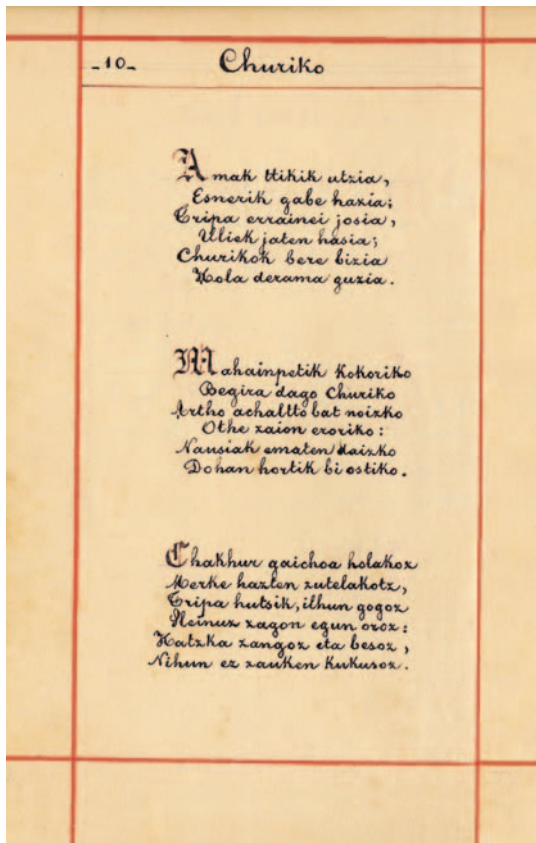 -10-
Churiko
Amak ttikik utzia,
Esnerik gabe hazia;
Tripa errainei josia,
Uliek jaten hasia;
Churikok bere bizia
Hola derama guzia.
Mahainpetik kokoriko
Begira dago Churiko
Artho achaltto bat noizko
Othe zaion eroriko:
Nausiak ematen daizko
Dohan hortik bi ostiko.
Chakhur gaichoa holakoz
Merke hazten zutelakotz,
Tripa hutsik, ilhun gogoz
Heinuz zagon egun oroz:
Hatzka zangoz eta besoz,
Nihun ez zauken kukusoz.